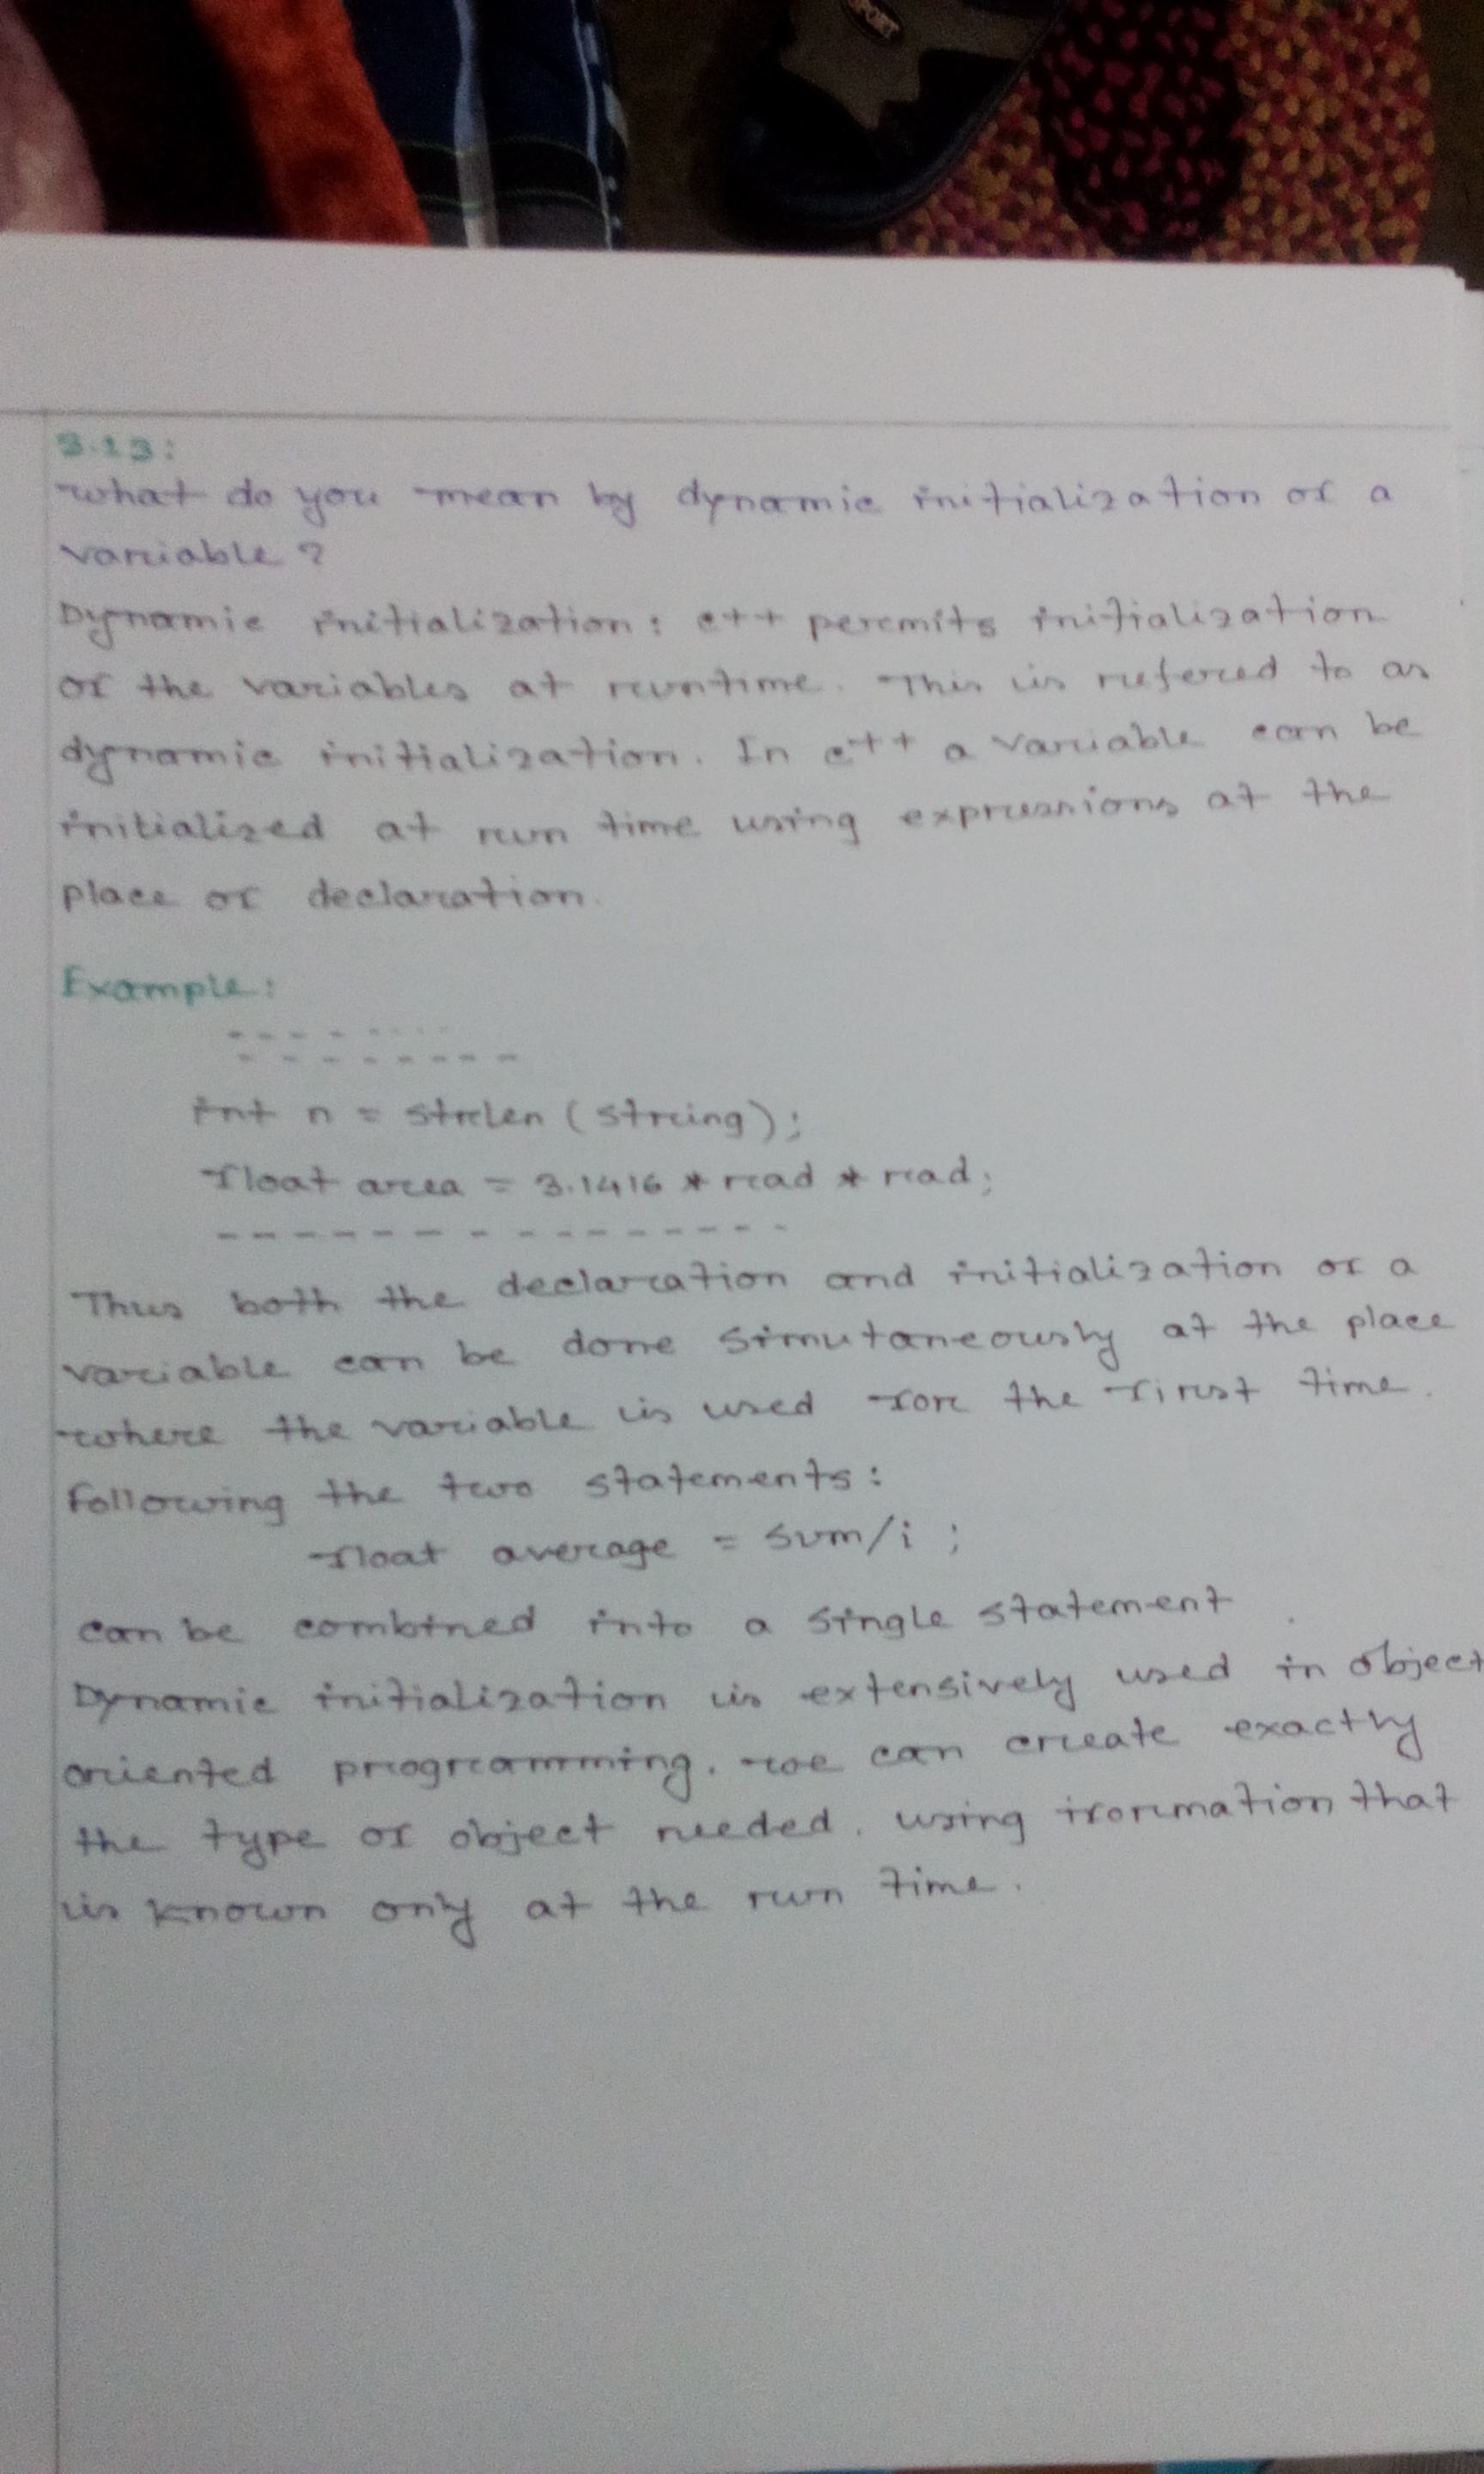 SPORT
3.13:
What do you mean by dynamic initialization of a
variable?
Dynamic initialization: c++ permits initialization
of the variables at runtime. This is refered to as
dynamic initialization. In c++ a variable can be
initialized at run time using expressions at the
place of declaration.
Example:
int n = strlen (string);
float area = 3.1416 * rad * rad;
Thus both the declaration and initialization of a
variable can be done simutaneously at the place
where the variable is used for the first time.
Following the two statements:
float average = sum/i ;
can be combined into a single statement.
Dynamic initialization is extensively used in object
oriented programming. we can create exactly
the type of object needed. using iformation that
is known only at the run time.